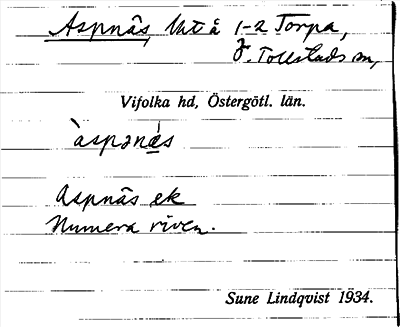 Aspnäs, lht å 1-2 Torpa,
V. Tollstads sn,
Vifolka hd, Östergötl. län.
àspǝnä́s
Aspnäs ek
Numera riven.
Sune Lindqvist 1934.